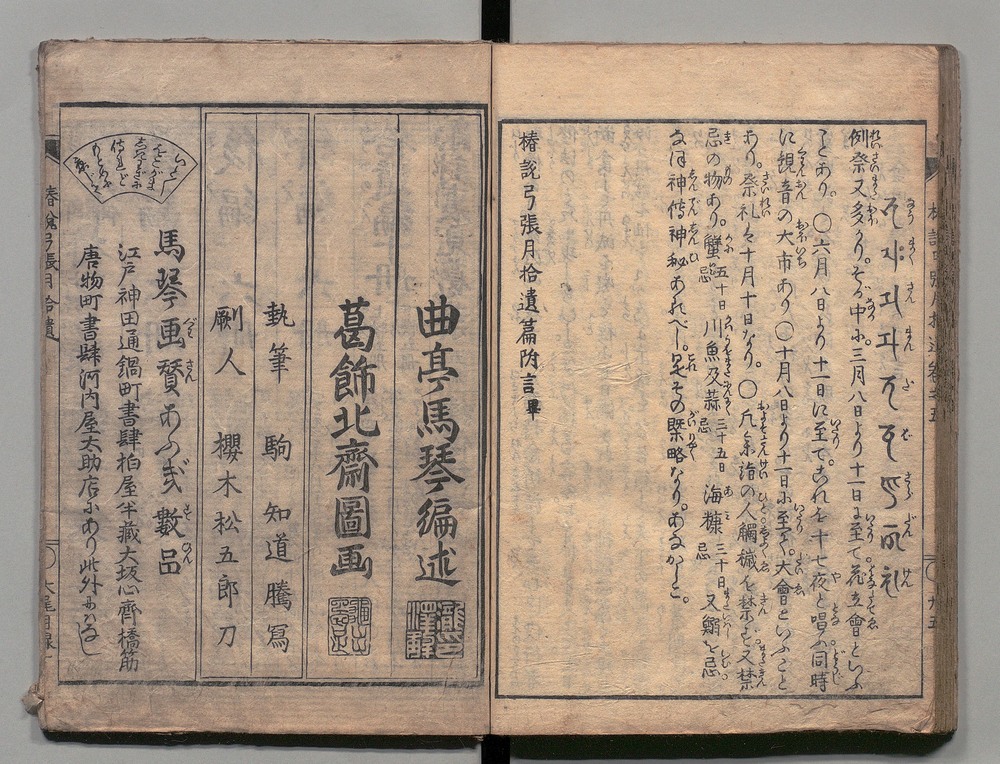 例祭又多かり。そが中に三月八日より十一日に至て花立會といふ
ことあり。〇六月八日より十一日に至て。これを十七夜と唱ふ同時
に観音の大市あり〇十月八日より十一日に至て。大會といふこと
あり。祭礼は十月十日なり。〇凡参詣の人觸穢を禁ず。又禁
忌の物あり。蟹忌五十日川魚及蒜忌三十五日海糠忌三十日又鰯を忌
なほ神傳神秘あれべし。是その槩略なり。あなかしこ。
椿説弓張月拾遺篇附言畢
曲亭馬琴編述
葛飾北齋圖画
執筆 駒知道騰冩
劂人 櫻木松五郎刀
馬琴画賛あふぎ數品
江戸神田通鍋町書肆柏屋半藏大坂心齊橋筋
唐物町書肆河内屋太助店にあり此外にはなし
椿説弓張月拾遺